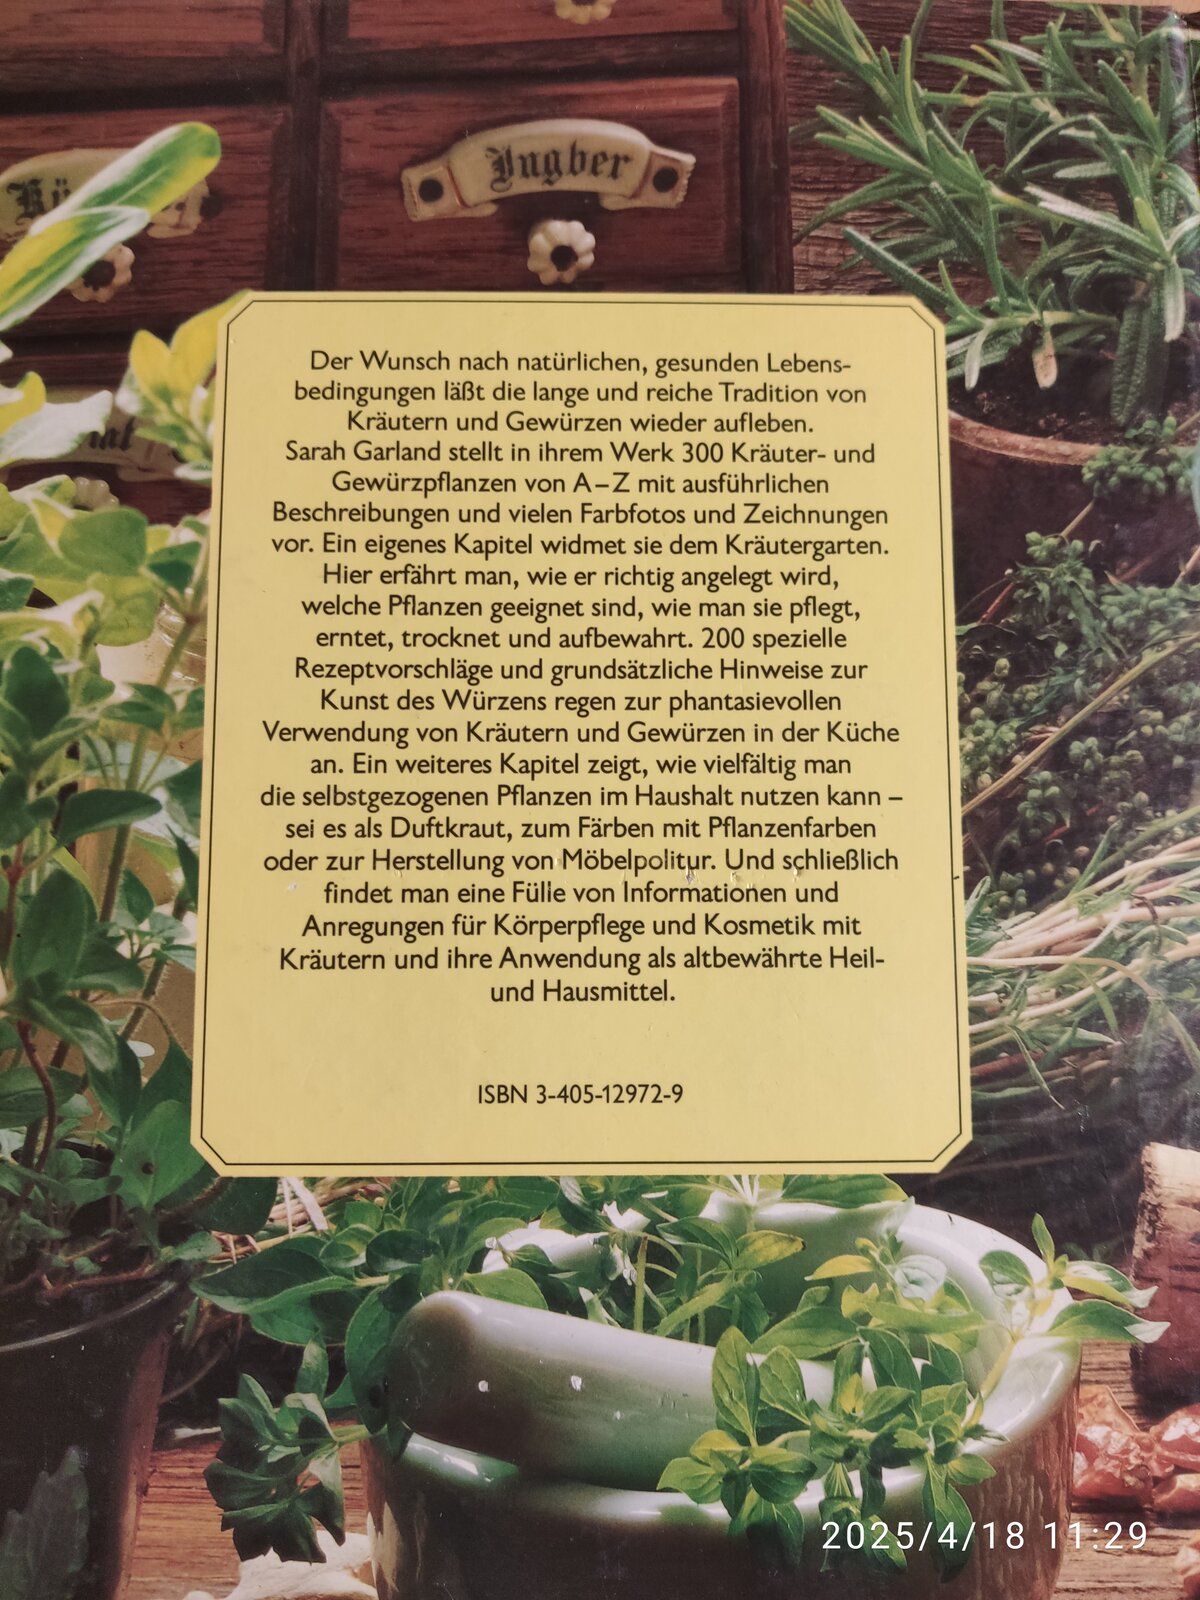 Ingber
Der Wunsch nach natürlichen, gesunden Lebens-
bedingungen läßt die lange und reiche Tradition von
Kräutern und Gewürzen wieder aufleben.
Sarah Garland stellt in ihrem Werk 300 Kräuter- und
Gewürzpflanzen von A–Z mit ausführlichen
Beschreibungen und vielen Farbfotos und Zeichnungen
vor. Ein eigenes Kapitel widmet sie dem Kräutergarten.
Hier erfährt man, wie er richtig angelegt wird,
welche Pflanzen geeignet sind, wie man sie pflegt,
erntet, trocknet und aufbewahrt. 200 spezielle
Rezeptvorschläge und grundsätzliche Hinweise zur
Kunst des Würzens regen zur phantasievollen
Verwendung von Kräutern und Gewürzen in der Küche
an. Ein weiteres Kapitel zeigt, wie vielfältig man
die selbstgezogenen Pflanzen im Haushalt nutzen kann –
sei es als Duftkraut, zum Färben mit Pflanzenfarben
oder zur Herstellung von Möbelpolitur. Und schließlich
findet man eine Fülle von Informationen und
Anregungen für Körperpflege und Kosmetik mit
Kräutern und ihre Anwendung als altbewährte Heil-
und Hausmittel.
ISBN 3-405-12972-9
2025/4/18 11:29